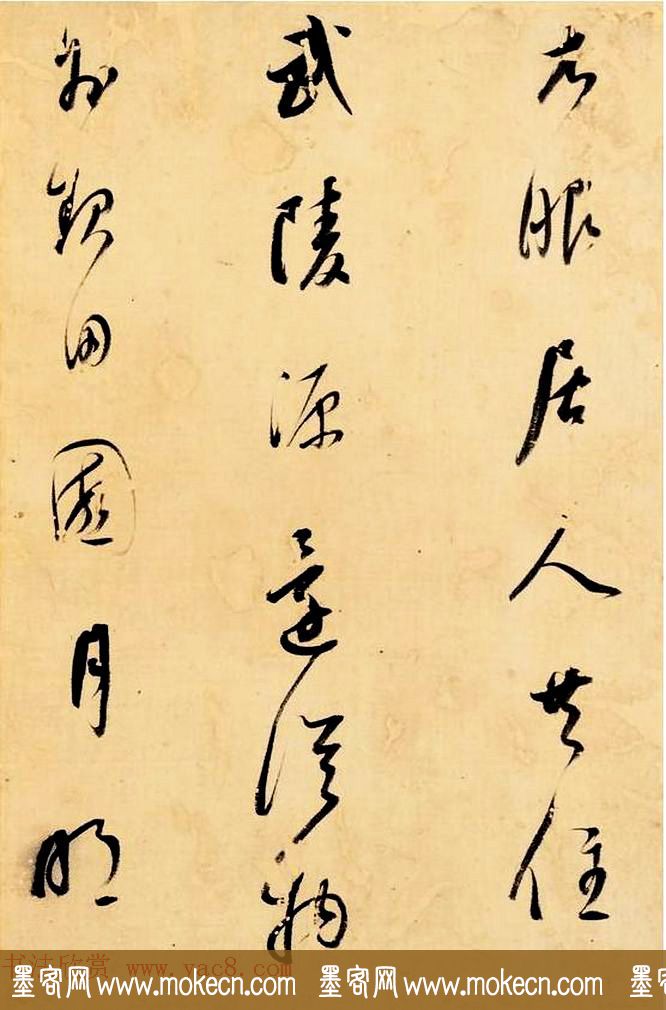 衣服居人共住
武陵源還從物
外起田園月明
书法欣赏 www.yac8.com
墨客网 www.mokecn.com 墨客网 www.mokecn.com